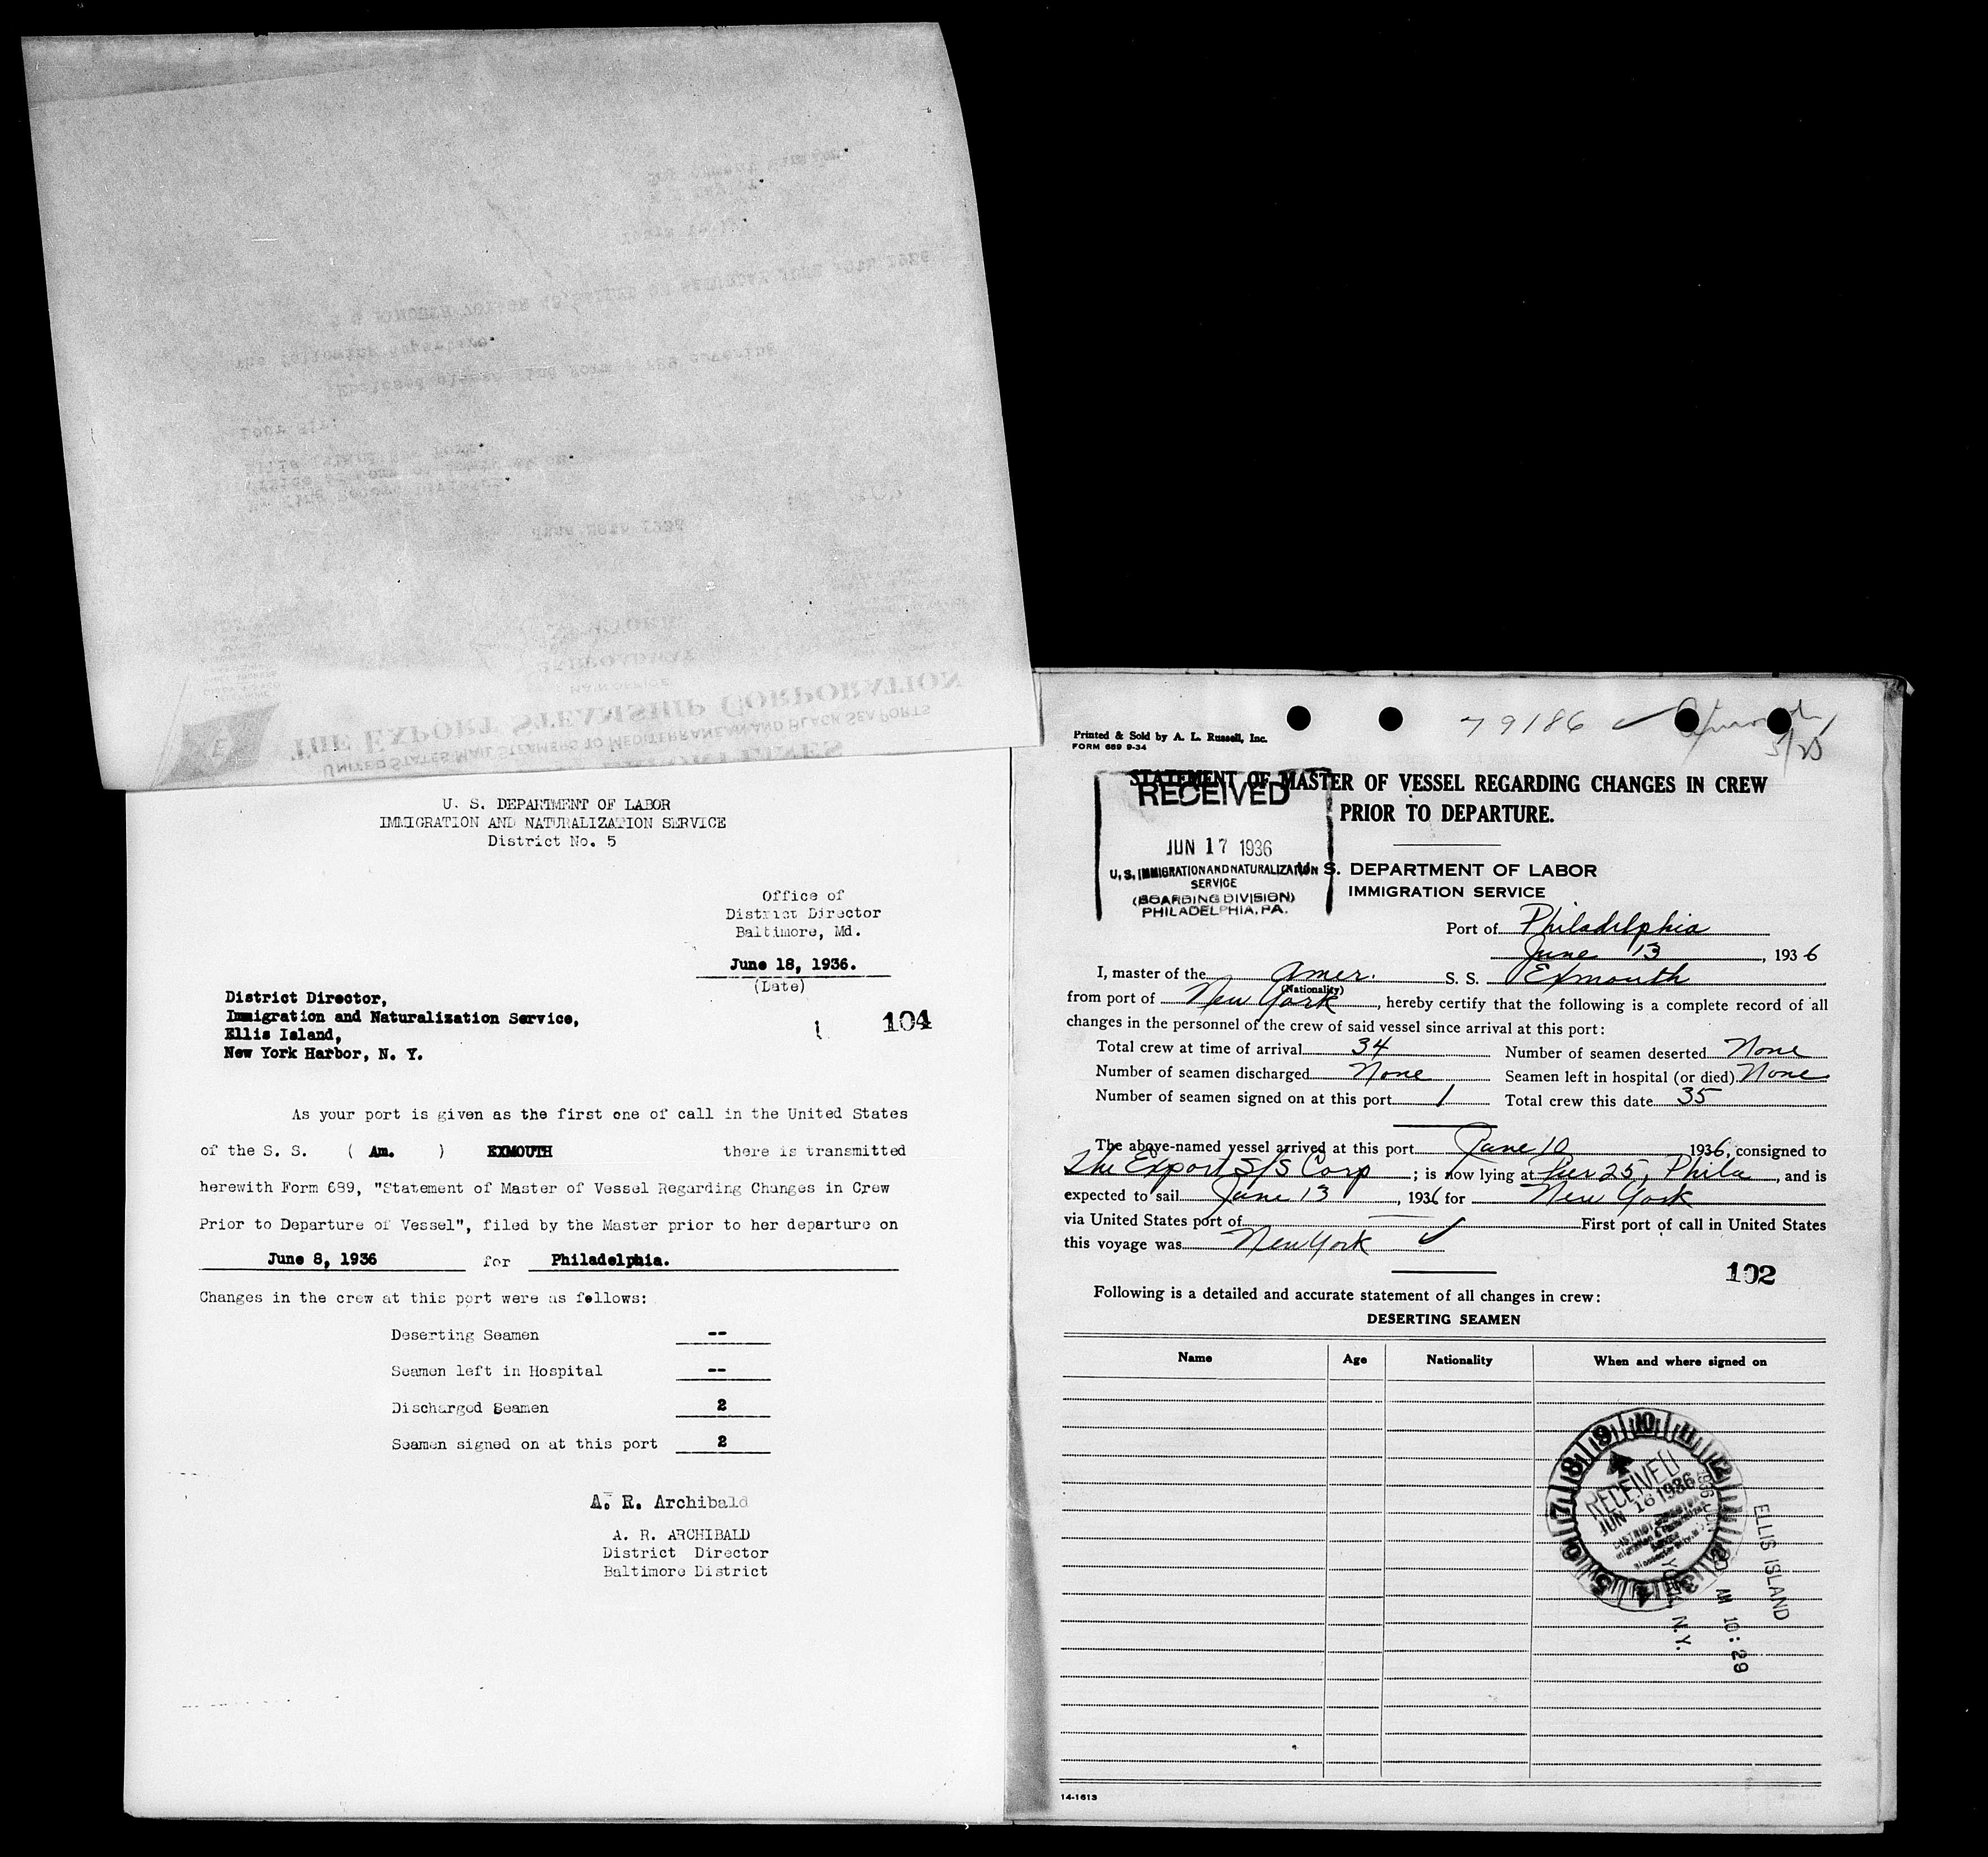 THE EXPORT STEAMSHIP CORPORATION
UNITED STATES MAIL STEAMERS TO MEDITERRANEAN AND BLACK SEA PORTS
MAIN OFFICE
Dear Sir:
Enclosed please find Form # 689 covering
the following departure.
U. S. DEPARTMENT OF LABOR
IMMIGRATION AND NATURALIZATION SERVICE
District No. 5
Office of
District Director
Baltimore, Md.
June 18, 1936.
(Date)
District Director,
Immigration and Naturalization Service,
Ellis Island,
New York Harbor, N. Y.
104
As your port is given as the first one of call in the United States
of the S. S. ( Am. ) EXMOUTH there is transmitted
herewith Form 689, "Statement of Master of Vessel Regarding Changes in Crew
Prior to Departure of Vessel", filed by the Master prior to her departure on
June 8, 1936 for Philadelphia.
Changes in the crew at this port were as follows:
Deserting Seamen --
Seamen left in Hospital --
Discharged Seamen 2
Seamen signed on at this port 2
A. R. Archibald
A. R. ARCHIBALD
District Director
Baltimore District
79186
Printed & Sold by A. L. Russell, Inc.
FORM 689 9-34
STATEMENT OF MASTER OF VESSEL REGARDING CHANGES IN CREW
PRIOR TO DEPARTURE.
RECEIVED
JUN 17 1936
U. S. IMMIGRATION AND NATURALIZATION
SERVICE
(BOARDING DIVISION)
PHILADELPHIA, PA.
U. S. DEPARTMENT OF LABOR
IMMIGRATION SERVICE
Port of Philadelphia
June 13, 1936
I, master of the Amer. S. S. Exmouth
(Nationality)
from port of New York, hereby certify that the following is a complete record of all
changes in the personnel of the crew of said vessel since arrival at this port:
Total crew at time of arrival 34 Number of seamen deserted None
Number of seamen discharged None Seamen left in hospital (or died) None
Number of seamen signed on at this port 1 Total crew this date 35
The above-named vessel arrived at this port June 10 1936, consigned to
The Export S/S Corp ; is now lying at Pier 25, Phila, and is
expected to sail June 13, 1936 for New York
via United States port of First port of call in United States
this voyage was New York
102
Following is a detailed and accurate statement of all changes in crew:
DESERTING SEAMEN
Name Age Nationality When and where signed on
RECEIVED
JUN 16 1936
ELLIS ISLAND
AM 10:29
N.Y.
14-1613